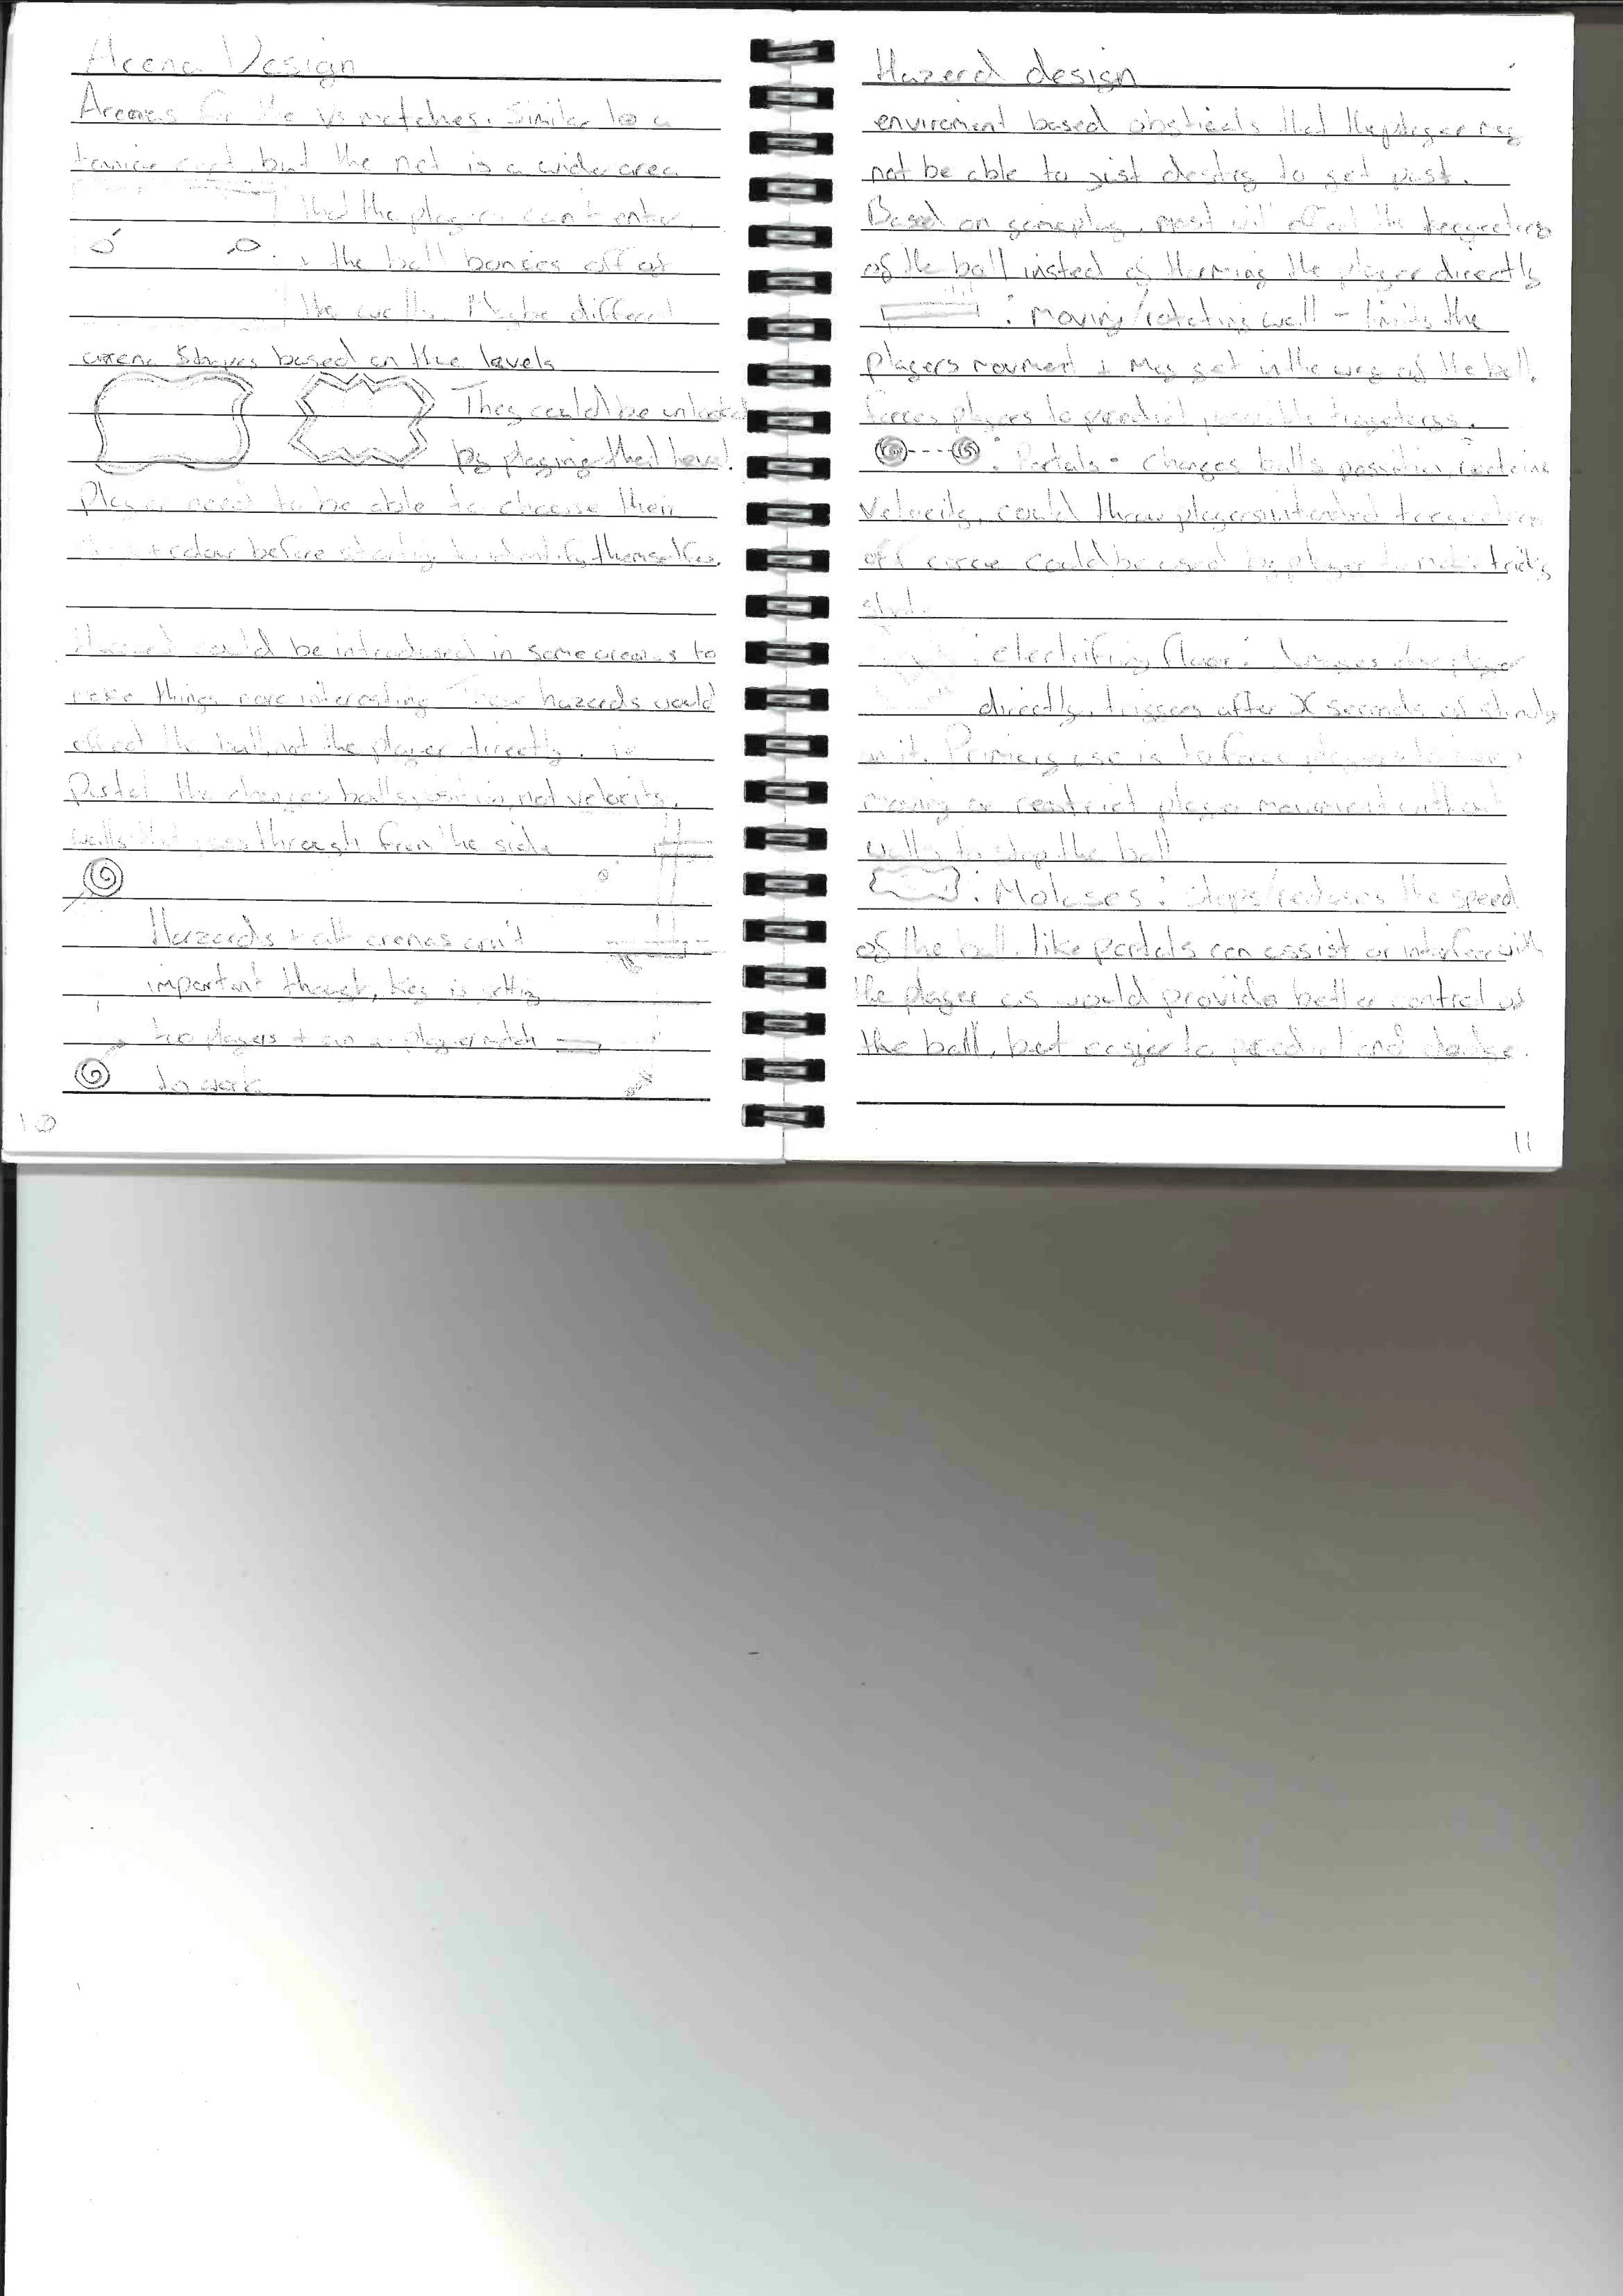 Arena Design
Arenas for the Vs matches. Similar to a
but the net is a wide area
that the players can't enter,
+ the ball bounces off of
the walls. Maybe different
arena Shapes based on the levels
They could be unlocked
by playing that level.
Player need to be able to choose their
colour before starting to identify themselfes.
Hazard could be introdused in some arenas to
make things more interesting. These hazards would
effect the ball, not the player directly. ie
Portal the changes balls position, not velocity.
walls that pass through from the side
Hazards + alt arenas arn't
important though, key is getting
two players + an a player match
to work
10
Hazerd design
enviroment based obsticals that the player may
not be able to jist destry to get past.
Based on gameplay, most will effect the
of the ball insted of Harming the player directly
: moving/rotating wall - limits the
players movment + May get in the way of the ball.
forces players to predict possible
: Portals - changes balls position, 
velocity, could throw players intended
off could be used by player to make trick
shot.
: electrifing floor: damages the player
directly, triggers after X seconds of
on it. Primary use is to force players to
moving or restrict player movment without
walls to stop the ball
: Molases : Stops/reduses the speed
of the ball. like portals can assist or interfear with
the player as would provide better control of
the ball, but easyer to predict and dodge.
11